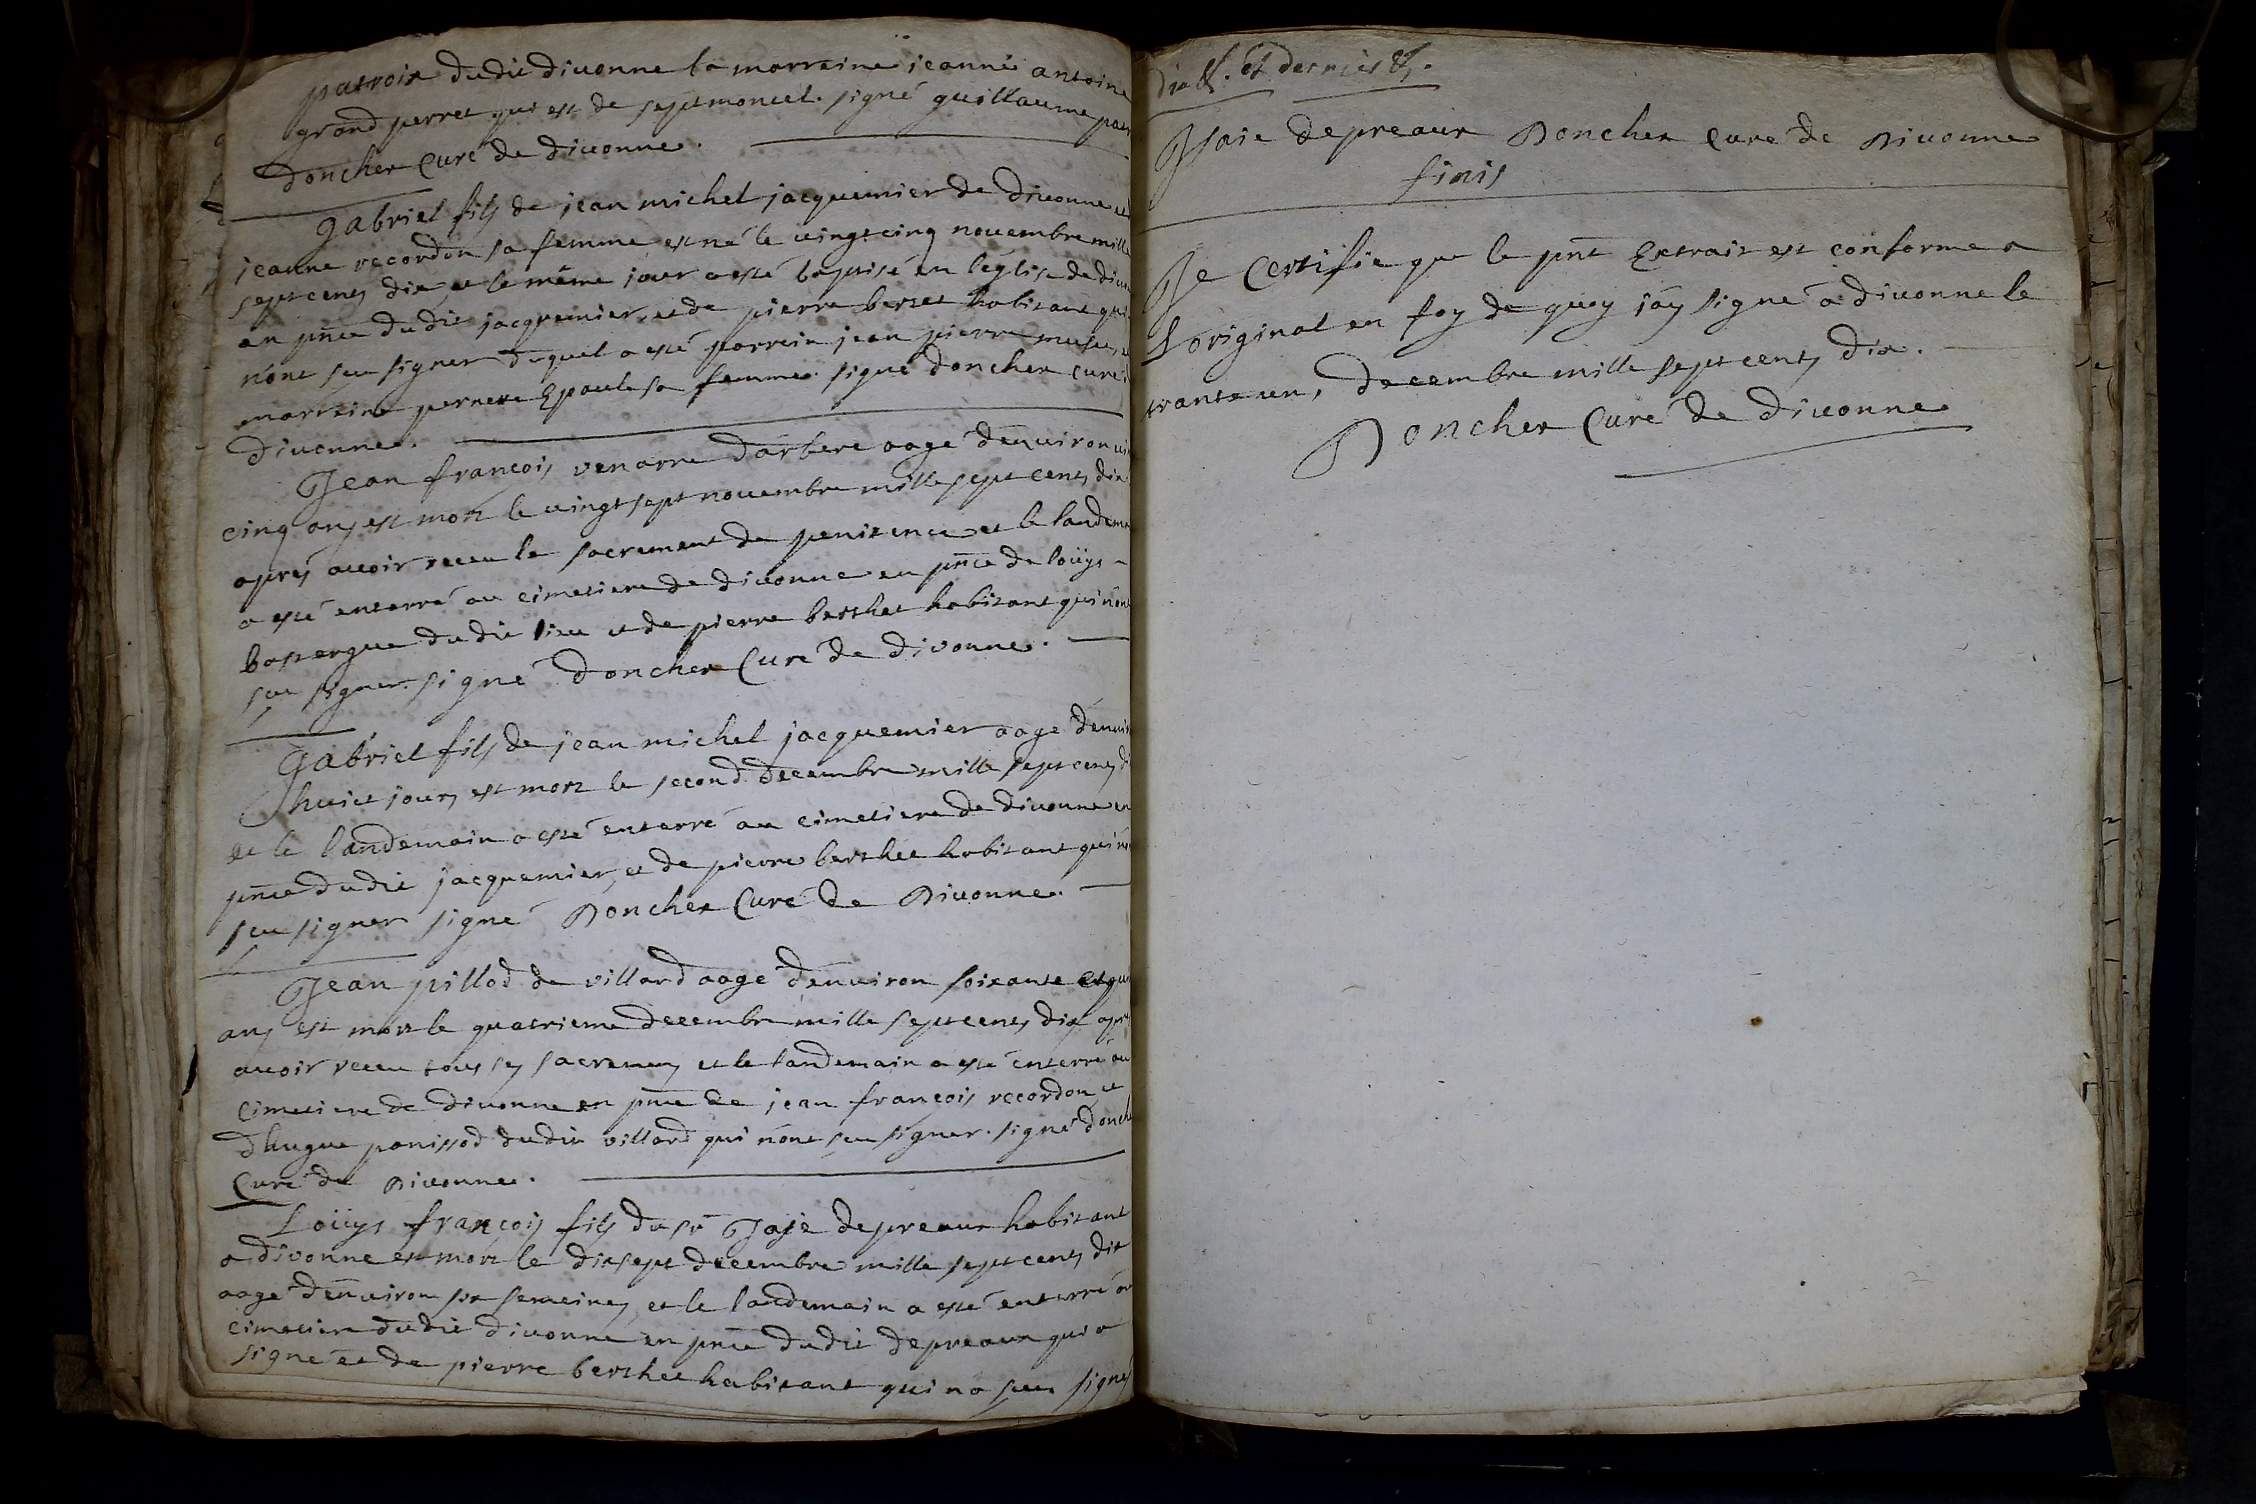 patroix dudit divonne la marreine jeanne antoine
grand perret qui est de septmoncel. signé guillaume
doncher Curé de divonne.
Gabriel fils de jean michel jacquemier de divonne et
jeanne recordon sa femme est né le vingtcinq novembre mille
sept cents dix, et le même jour a esté baptisé en l'église de
en pñce dudit jacquemier, et de pierre bertet habitant qui
n'ont seu signer duquel a esté parrein jean pierre
marreine pernete Epaule sa femme. signé doncher curé
divonne.
Jean françois venarre d'arbere aagé d'environ
cinq ans est mort le vingt sept novembre mille sept cents dix
aprés avoir receu le sacrement de penitence et le landem
a esté enterré au cimetiere de divonne en pñce de loüys
bastergue dudit lieu et de pierre berthet habitant qui n'ont
seu signer. signé doncher Curé de divonne.
Gabriel fils de jean michel jacquemier aagé d'envi
huict jours est mort le second decembre mille sept cents di
et le landemain a esté enterré au cimetiere de divonne en
pñce dudit jacquemier, et de pierre berthet habitant qui n'o
seu signer signé Doncher Curé de Divonne.
Jean pillod de villard aagé d'environ soixante et
ans est mort le quatrieme decembre mille sept cents dix apr
avoir receu tous ses sacremens et le landemain a esté enterré au
Cimetiere de divonne en pñce de jean françois recordon et
d'hugue panissod dudit villard qui n'ont seu signer. signé donch
Curé de Divonne.
Loüys françois fils du sr Isaïe depreaux habitant
a divonne est mort le dixsept decembre mille sept cents dix
aagé d'environ six semeines, et le landemain a esté enterré au
cimetiere dudit divonne en pñce dudit depreaux qui a
signé et de pierre berthet habitant qui n'a seu signer
dix f. et dernier f.
Isaie depreaux Doncher Curé de Divonne
finis
Je Certifie que le pñt Extrait est conforme a
L'original en foy de quoy j'ay signé a divonne le
trante un, decembre mille sept cents dix.
Doncher Curé de divonne